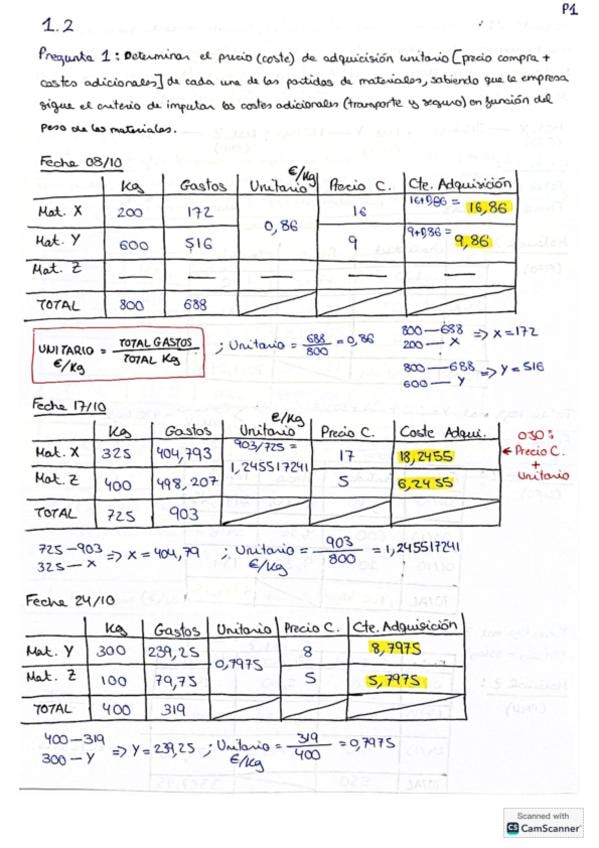 P1
1.2
Pregunta 1: Determinar el precio (coste) de adquicisión unitario [precio compra +
costes adicionales] de cada una de las partidas de materiales, sabiendo que la empresa
sigue el criterio de imputar los costes adicionales (transporte y seguro) en función del
peso de los materiales.
Fecha 08/10
Kg Gastos Unitario €/Kg Precio C. Cte. Adquisición
Mat. X 200 172 0,86 16 16+0,86 = 16,86
Mat. Y 600 516 9 9+0,86 = 9,86
Mat. Z — — — — —
TOTAL 800 688
UNITARIO €/Kg = TOTAL GASTOS / TOTAL Kg ; Unitario = 688/800 = 0,86
800 — 688
200 — X => X = 172
800 — 688
600 — Y => Y = 516
Fecha 17/10
Kg Gastos Unitario €/Kg Precio C. Coste Adqui.
Mat. X 325 404,793 903/725 = 1,245517241 17 18,2455
Mat. Z 400 498,207 5 6,2455
TOTAL 725 903
OJO:
← Precio C.
+
Unitario
725 – 903
325 — X => X = 404,79 ; Unitario €/Kg = 903/800 = 1,245517241
Fecha 24/10
Kg Gastos Unitario Precio C. Cte. Adquisición
Mat. Y 300 239,25 0,7975 8 8,7975
Mat. Z 100 79,75 5 5,7975
TOTAL 400 319
400 – 319
300 – Y => Y = 239,25 ; Unitario €/Kg = 319/400 = 0,7975
Scanned with
CS CamScanner